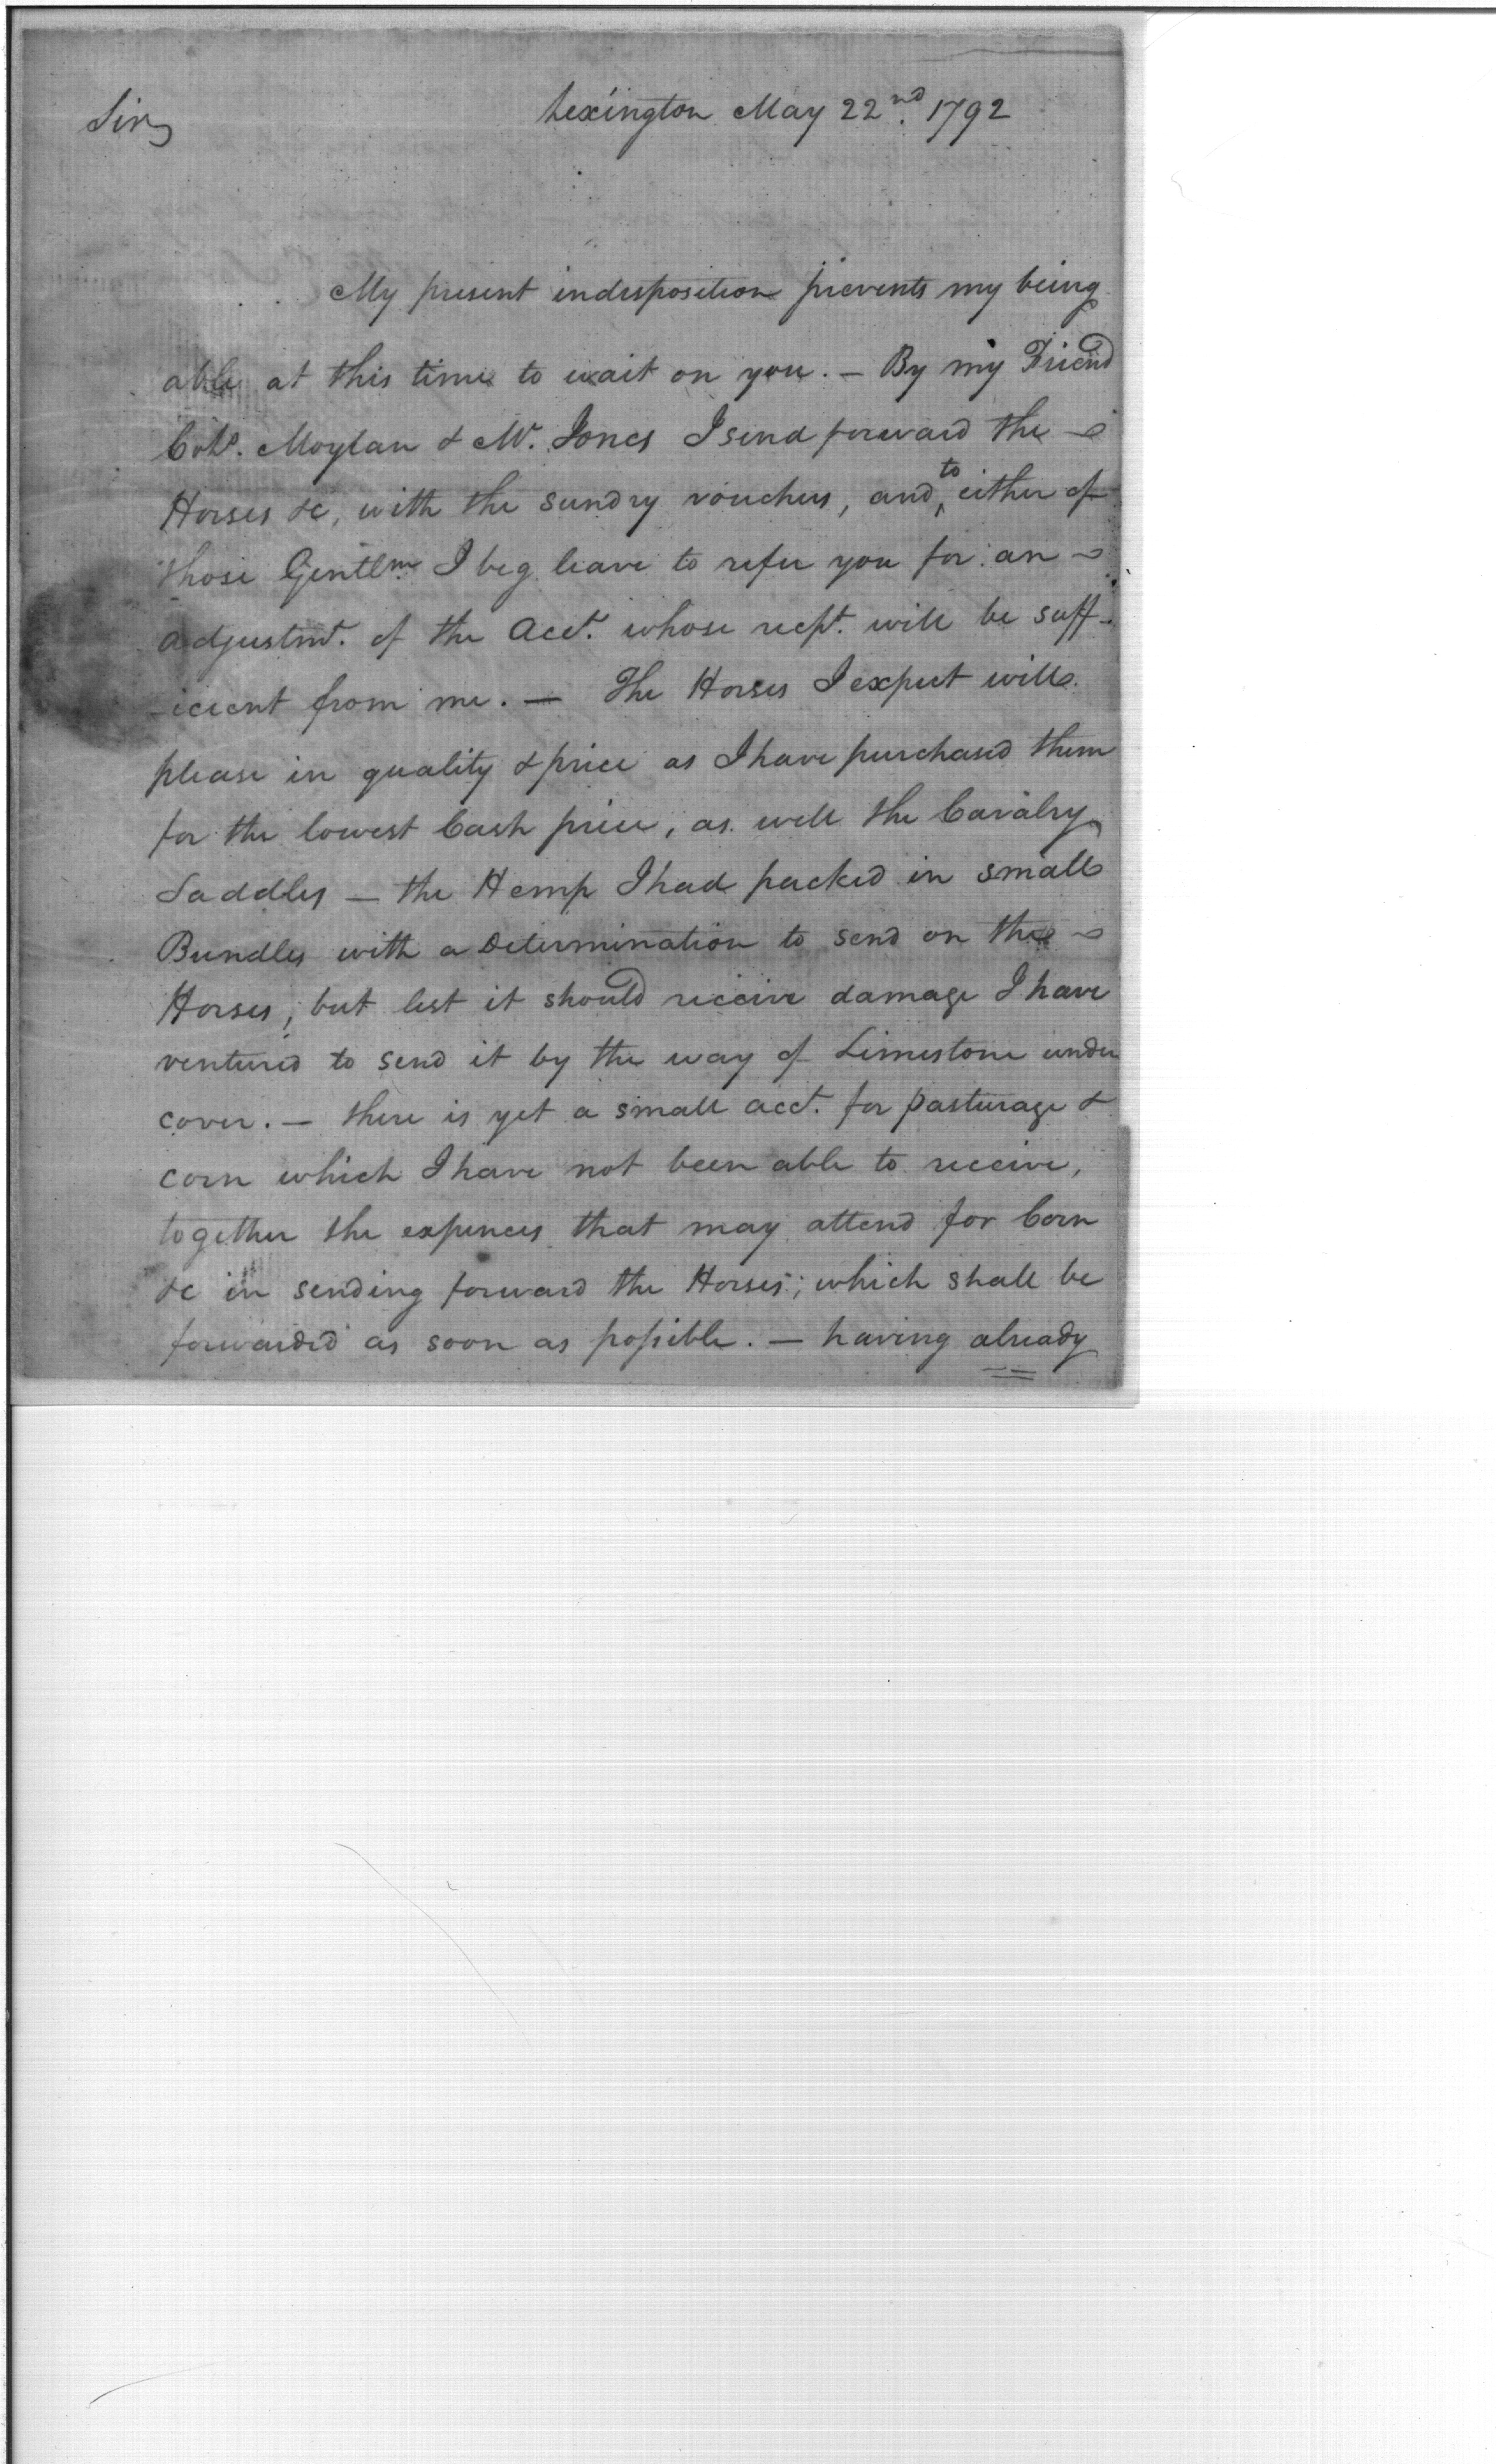 Sir, Lexington May 22nd. 1792
My present indisposition prevents my being
able at this time to wait on you. — By my Friend
Colo. Moylan & Mr. Jones I send forward the
Horses &c, with the sundry vouchers, and to either of
those Gentlmn. I beg leave to refer you for an
adjustmt. of the Acct. whose recpt. will be suff-
-icient from me. — The Horses I expect will
please in quality & price as I have purchased them
for the lowest Cash price, as well the Cavalry
Saddles — the Hemp I had packed in small
Bundles with a Determination to send on the
Horses, but lest it should receive damage I have
ventured to send it by the way of Limestone under
cover. — there is yet a small acct. for pasturage &
corn which I have not been able to receive,
together the expences that may attend for Corn
&c in sending forward the Horses; which shall be
forwarded as soon as possible. — having already